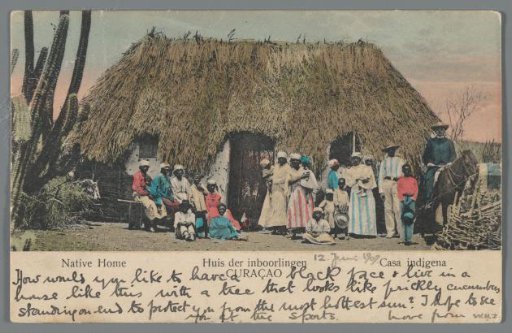 Native Home Huis der inboorlingen Casa indigena
CURAÇAO
12 June
How would you like to have a black face & live in a
house like this with a tree that looks like prickly cucumbers
standing on end to protect you from the most hottest sun? I hope to see
you at the sports. Love from